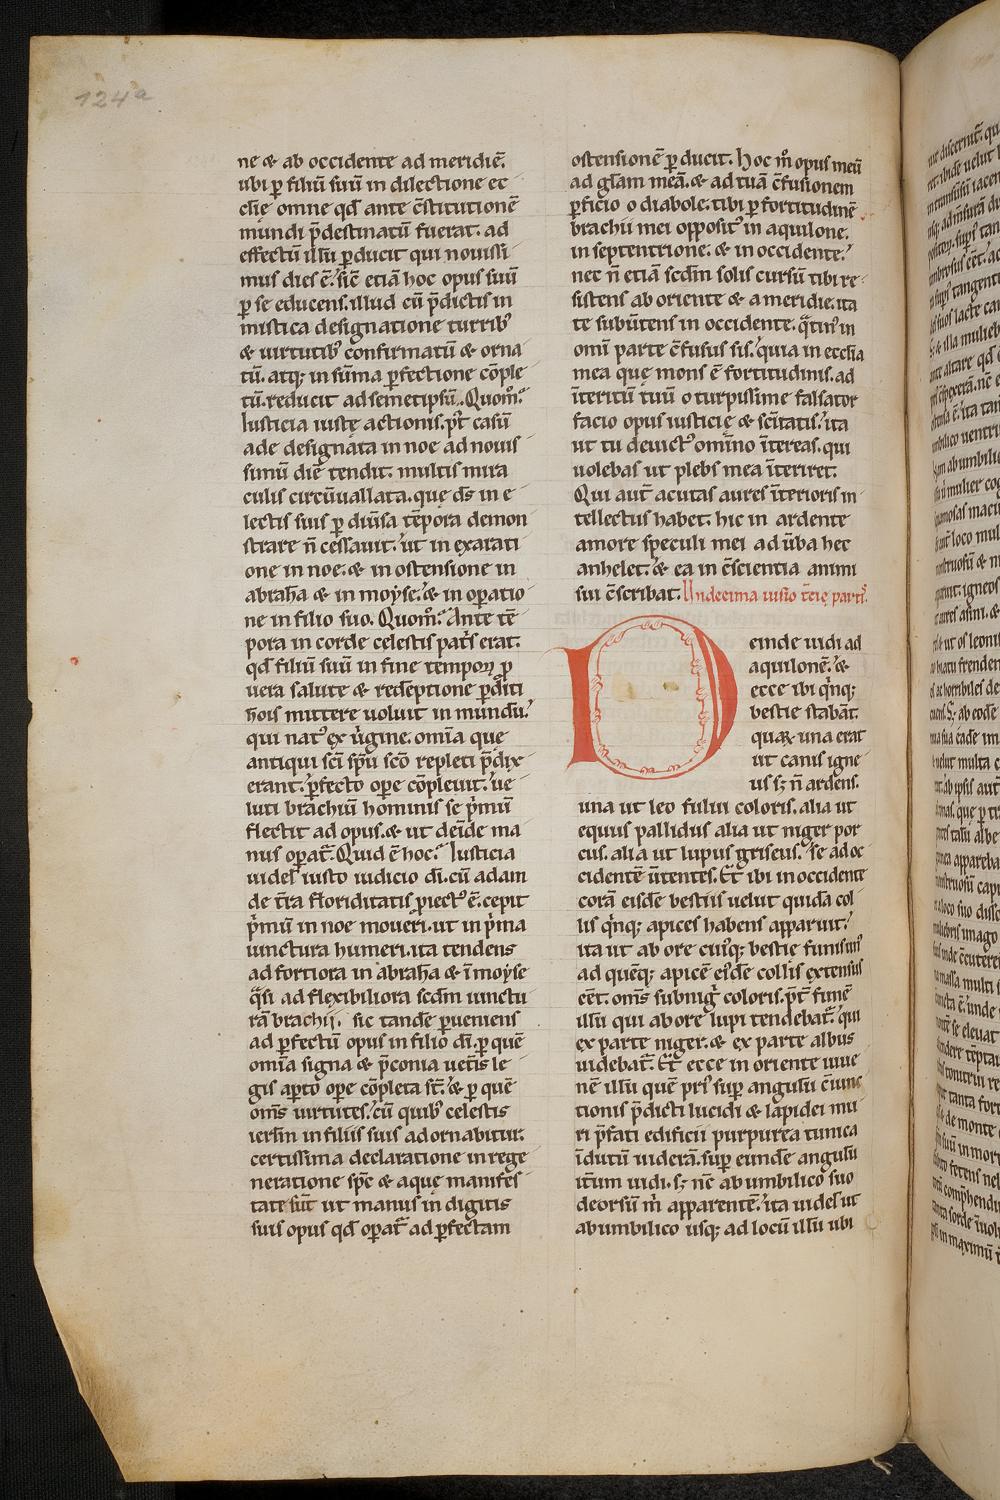 124a
ne & ab occidente ad meridiē.
ubi ꝑ filiū suū in dilectione ec
clie omne qd̄ ante c̄stitutionē
mundi p̄destinatū fuerat. ad
effectū illū ꝑducit qui nouissi
mus dies ē. sic etiā hoc opus suū
ꝑ se educens. illud cū p̄dictis in
mistica designatione turribꝰ
& uirtutibꝰ confirmatū & orna
tū. atq; in sūma ꝑfectione cōple
tū. reducit ad semetipsū. Quom̊.
Iusticia iustę actionis. p̊t casū
ade designata in noe ad nouis
simū diē tendit. multis mira
culis circūuallata. que ds̄ in e
lectis suis ꝑ diūsa tēpora demon
strare n̄ cessauit. ut in exarati
one in noe. & in ostensione in
abrahā & in moyse. & in operatio
ne in filio suo. Quom̊. Ante tē
pora in corde celestis pat̄s erat.
qd̄ filiū suū in fine tempoꝝ ꝑ
uera salute & redēptione ꝑditi
hōis mittere uoluit in mundū.
qui natꝰ ex ūgine. om̄ia que
antiqui sc̄i sp̄u sc̄o repleti p̄dix
erant. ꝑfecto ope cōpleuit. ue
luti brachiū hominis se p̄mū
flectit ad opus. & ut deīde ma
nus opat̄. Quid ē hoc. Iusticia
uidel̄ iusto iudicio dī. cū adam
de t̄ra floriditatis ꝓiectꝰ ē. cepit
p̄mū in noe moueri. ut in p̄ma
iunctura humeri. ita tendens
ad fortiora in abrahā & ī moyse
q̄si ad flexibiliora scdm̄ iunctu
rā brachii. sic tandē ꝑueniens
ad ꝑfectū opus in filio dī. ꝑ quē
om̄ia signa & p̄conia uet̄is le
gis apto ope cōpleta st̄. & ꝑ quē
om̄s uirtutes. cū quibꝰ celestis
ierlm̄ in filiis suis adornabitur.
certissima declaratione in rege
neratione sp̄c & aque manifes
tate sūt ut manus in digitis
suis opus qd̄ opat̄ ad ꝑfectam
ostensionē ꝑducit. Hoc m̊ opus meū
ad gl̄am meā. & ad tuā c̄fusionem
ꝑficio o diabole. tibi ꝑ fortitudinē
brachii mei oppositꝰ in aquilone.
in septentrione. & in occidente.
nec n̄ etiā scdm̄ solis cursū tibi re
sistens ab oriente & a meridie. ita
te subūtens in occidente. q̄tinꝰ in
omī parte c̄fusus sis. quia in ecclīa
mea que mons ē fortitudinis. ad
īteritū tuū o turpissime falsator
facio opus iusticię & sc̄itatis. ita
ut tu deuictꝰ omīno ītereas. qui
uolebas ut plebs mea īteriret.
Qui aut̄ acutas aures īterioris in
tellectus habet. hic in ardente
amore speculi mei ad ūba hec
anhelet. & ea in c̄scientia animi
sui c̄scribat. Undecima uisio t̄cię partꝰ.
Deinde uidi ad
aquilonē. &
ecce ibi q̄nq;
bestię stabāt.
quaꝝ una erat
ut canis igne
us s; n̄ ardens.
una ut leo fului coloris. alia ut
equus pallidus alia ut niger por
cus. alia ut lupus griseus. se ad oc
cidentē ūtentes. Et ibi in occidente
corā eisdē bestiis uelut quidā col
lis q̄nq; apices habens apparuit.
ita ut ab ore cuiꝰq; bestię funis unꝰ
ad quēq; apicē eiꝰdē collis extensus
eēt. om̄s subnigi coloris. p̄t funē
illū qui ab ore lupi tendebat̄. qui
ex parte niger. & ex parte albus
uidebat̄. Et ecce in oriente iuue
nē illū quē priꝰ suꝑ angulū c̄iunc
tionis p̄dicti lucidi & lapidei mu
ri p̄fati edificii purpurea tunica
īdutū uiderā. suꝑ eundē angulū
it̄um uidi. s; nē ab umbilico suo
deorsū m̄ apparentē. ita uidel̄ ut
ab umbilico usq; ad locū illū ubi